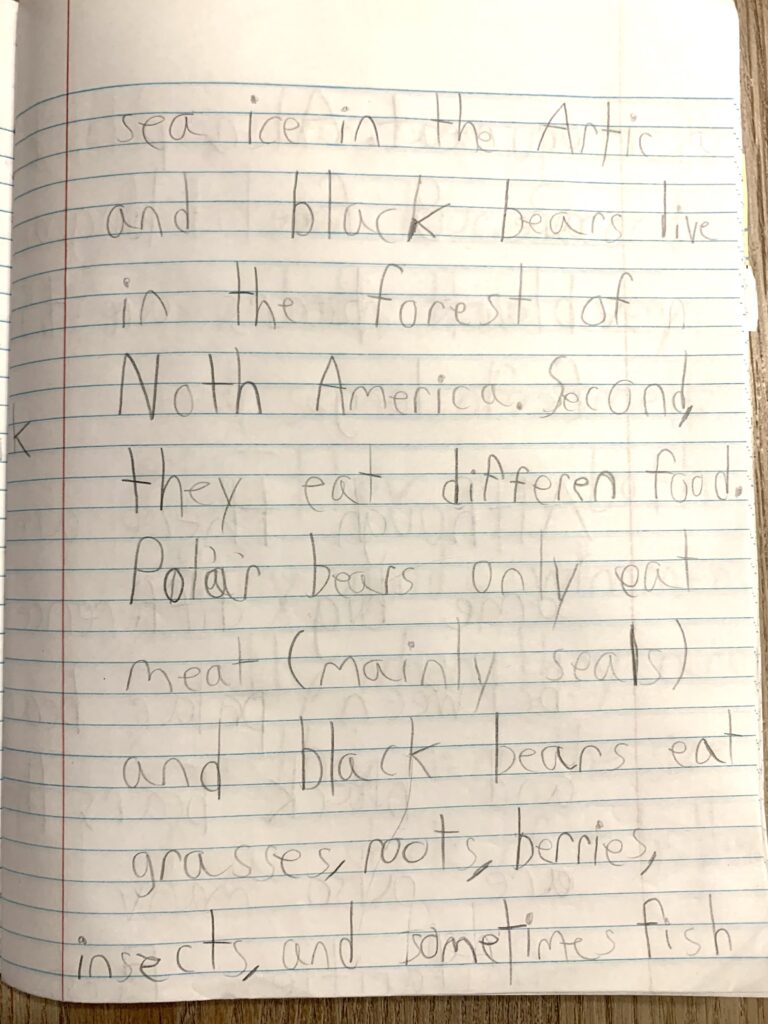 sea ice in the Artic
and black bears live
in the forest of
Noth America. Second,
they eat differen food.
Polar bears only eat
meat (mainly seals)
and black bears eat
grasses, roots, berries,
insects, and sometimes fish